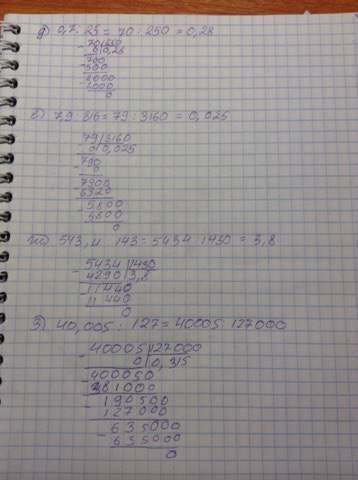 д) 0,7 : 25 = 70 : 250 = 0,28
70 | 250
0 | 0,28
700
500
2000
2000
0
7,9 : 316 = 79 : 3160 = 0,025
79 | 3160
0 | 0,025
790
0
7900
6320
15800
15800
0
543,4 : 143 = 5434 : 1430 = 3,8
5434 | 1430
4290 | 3,8
11440
11440
0
40,005 : 127 = 40005 : 127000
40005 | 127000
0 | 0,315
400050
381000
190500
127000
635000
635000
0